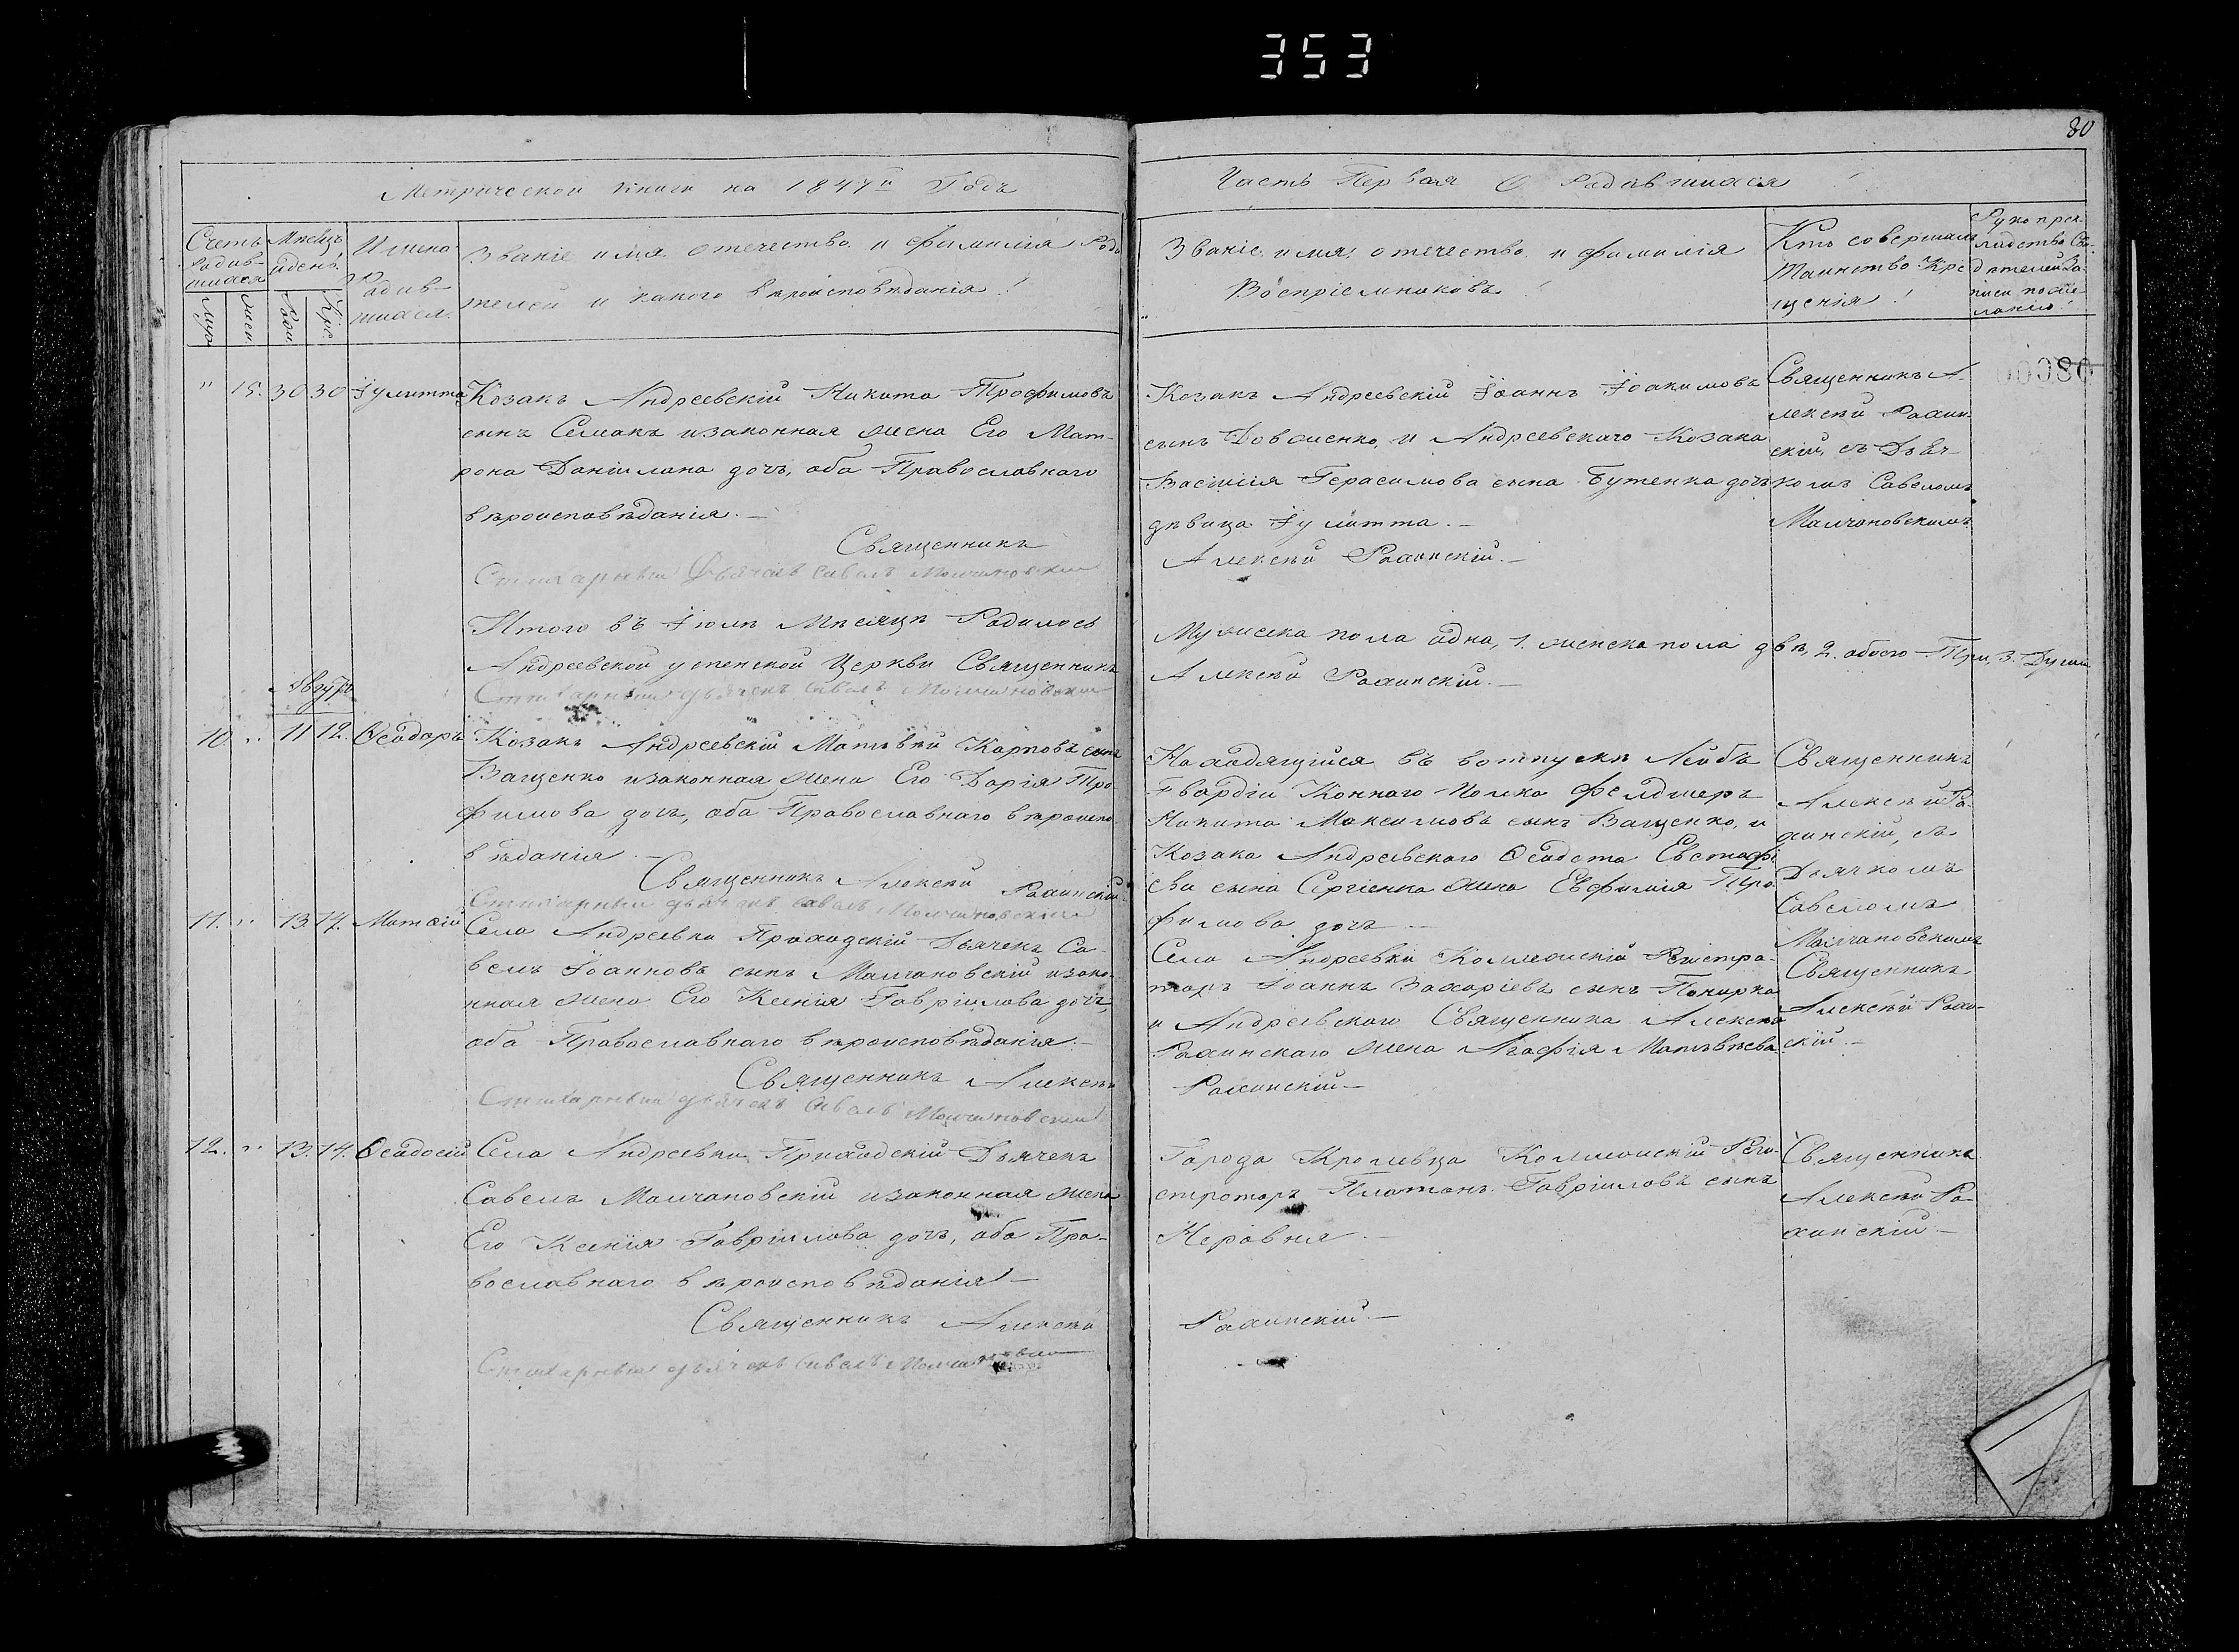 353
80
Метрической книги на 1847й Годъ
Часть Первая О Родившихся
Счетъ родив-шихся
Мѣсяцъ и день
Имена Родив-шихся.
Званіе имя, отечество и фамилія Роди-
телей и какого вѣроисповѣданія!
муж
жен
Рож
Кре.
Званіе, имя, отечество и фамилія
Воспріемниковъ!
Кто совершалъ
Таинство Кре
щенія!
Рукопрек
ладство Сви-
дѣтелей За-
писи по же-
ланію!
00080
" 15. 30 30 Іулитта
Козакъ Андреевскій Никита Трофимовъ
сынъ Семакъ изаконная жена Его Мат-
рона Даніилова дочь, оба Православнаго
вѣроисповѣданія. —
Священникъ
Стихарный Дьячекъ Савелъ Молчановскій
Козакъ Андреевскій Іоаннъ Іоакимовъ
сынъ Довженко, и Андреевскаго Козака
Василія Герасимова сына Бутенка дочь
дѣвица Іулитта. —
Алексѣй Рахинскій. —
Священникъ А-
лексѣй Рахин-
скій, съ Дьяч-
комъ Савеломъ
Молчановскимъ
Итого въ Іюлѣ Мѣсяцѣ Родилось
Андреевской успенской Церкви Священникъ
Стихарный дьячекъ Савелъ Молчановскій
Мужеска пола одна, 1. женска пола двѣ, 2. обоего Три, 3. Души
Алексѣй Рахинскій. —
Августъ
10. " 11 12. Ѳеодоръ
Козакъ Андреевскій Матвѣй Карповъ сынъ
Ващенко изаконная жена Его Дарія Тро-
фимова дочь, оба Православнаго вѣроиспо-
вѣданія —
Священникъ Алексѣй Рахинскій
Стихарный дьячекъ Савелъ Молчановскій
Находящійся въ вотпуски Лейбъ
Гвардіи Коннаго Полка Фелдшеръ
Никита Максимовъ сынъ Ващенко, и
Козака Андреевскаго Ѳеодота Евстафі-
ева сына Сергіенка жена Евфимія Тро-
фимова дочь —
Священникъ
Алексѣй Ра-
хинскій, съ
Дьячкомъ
Савеломъ
Молчановскимъ
11. " 13 14. Матѳій
Села Андреевки Приходскій Дьячекъ Са-
велъ Іоанновъ сынъ Молчановскій изако-
нная жена Его Ксенія Гавріилова дочь,
оба Православнаго вѣроисповѣданія. —
Священникъ Алексѣй
Стихарный дьячекъ Савелъ Молчановскій
Села Андреевки Коллежскій Регистра-
торъ Іоаннъ Захаріевъ сынъ Понирка
и Андреевскаго Священника Алексѣя
Рахинскаго жена Агафія Матвѣева
Рахинскій —
Священникъ
Алексѣй Рахин-
скій —
12. " 13. 14. Ѳеодосій
Села Андреевки Приходскій Дьячекъ
Савелъ Молчановскій изаконная жена
Его Ксенія Гавріилова дочь, оба Пра-
вославнаго вѣроисповѣданія —
Священникъ Алексѣй
Стихарный дьячекъ Савелъ Молчановскій
Города Кролевца Коллежскій Реги-
страторъ Платонъ Гавріиловъ сынъ
Неровня —
Рахинскій. —
Священникъ
Алексѣй Ра-
хинскій —